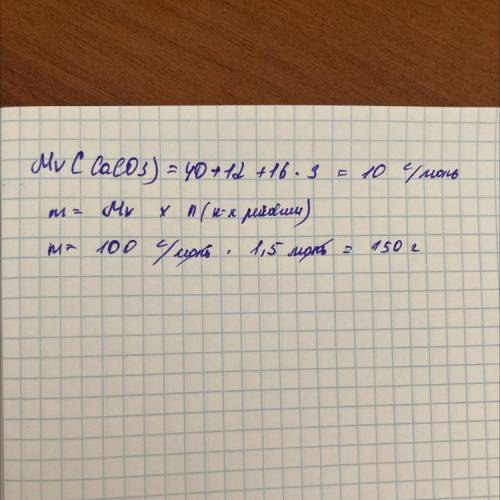 Mr (CaCO3) = 40+12 +16 · 3 = 10 г/моль
m = Mr x n (к-к
m = 100 г/моль · 1,5 моль = 150 г